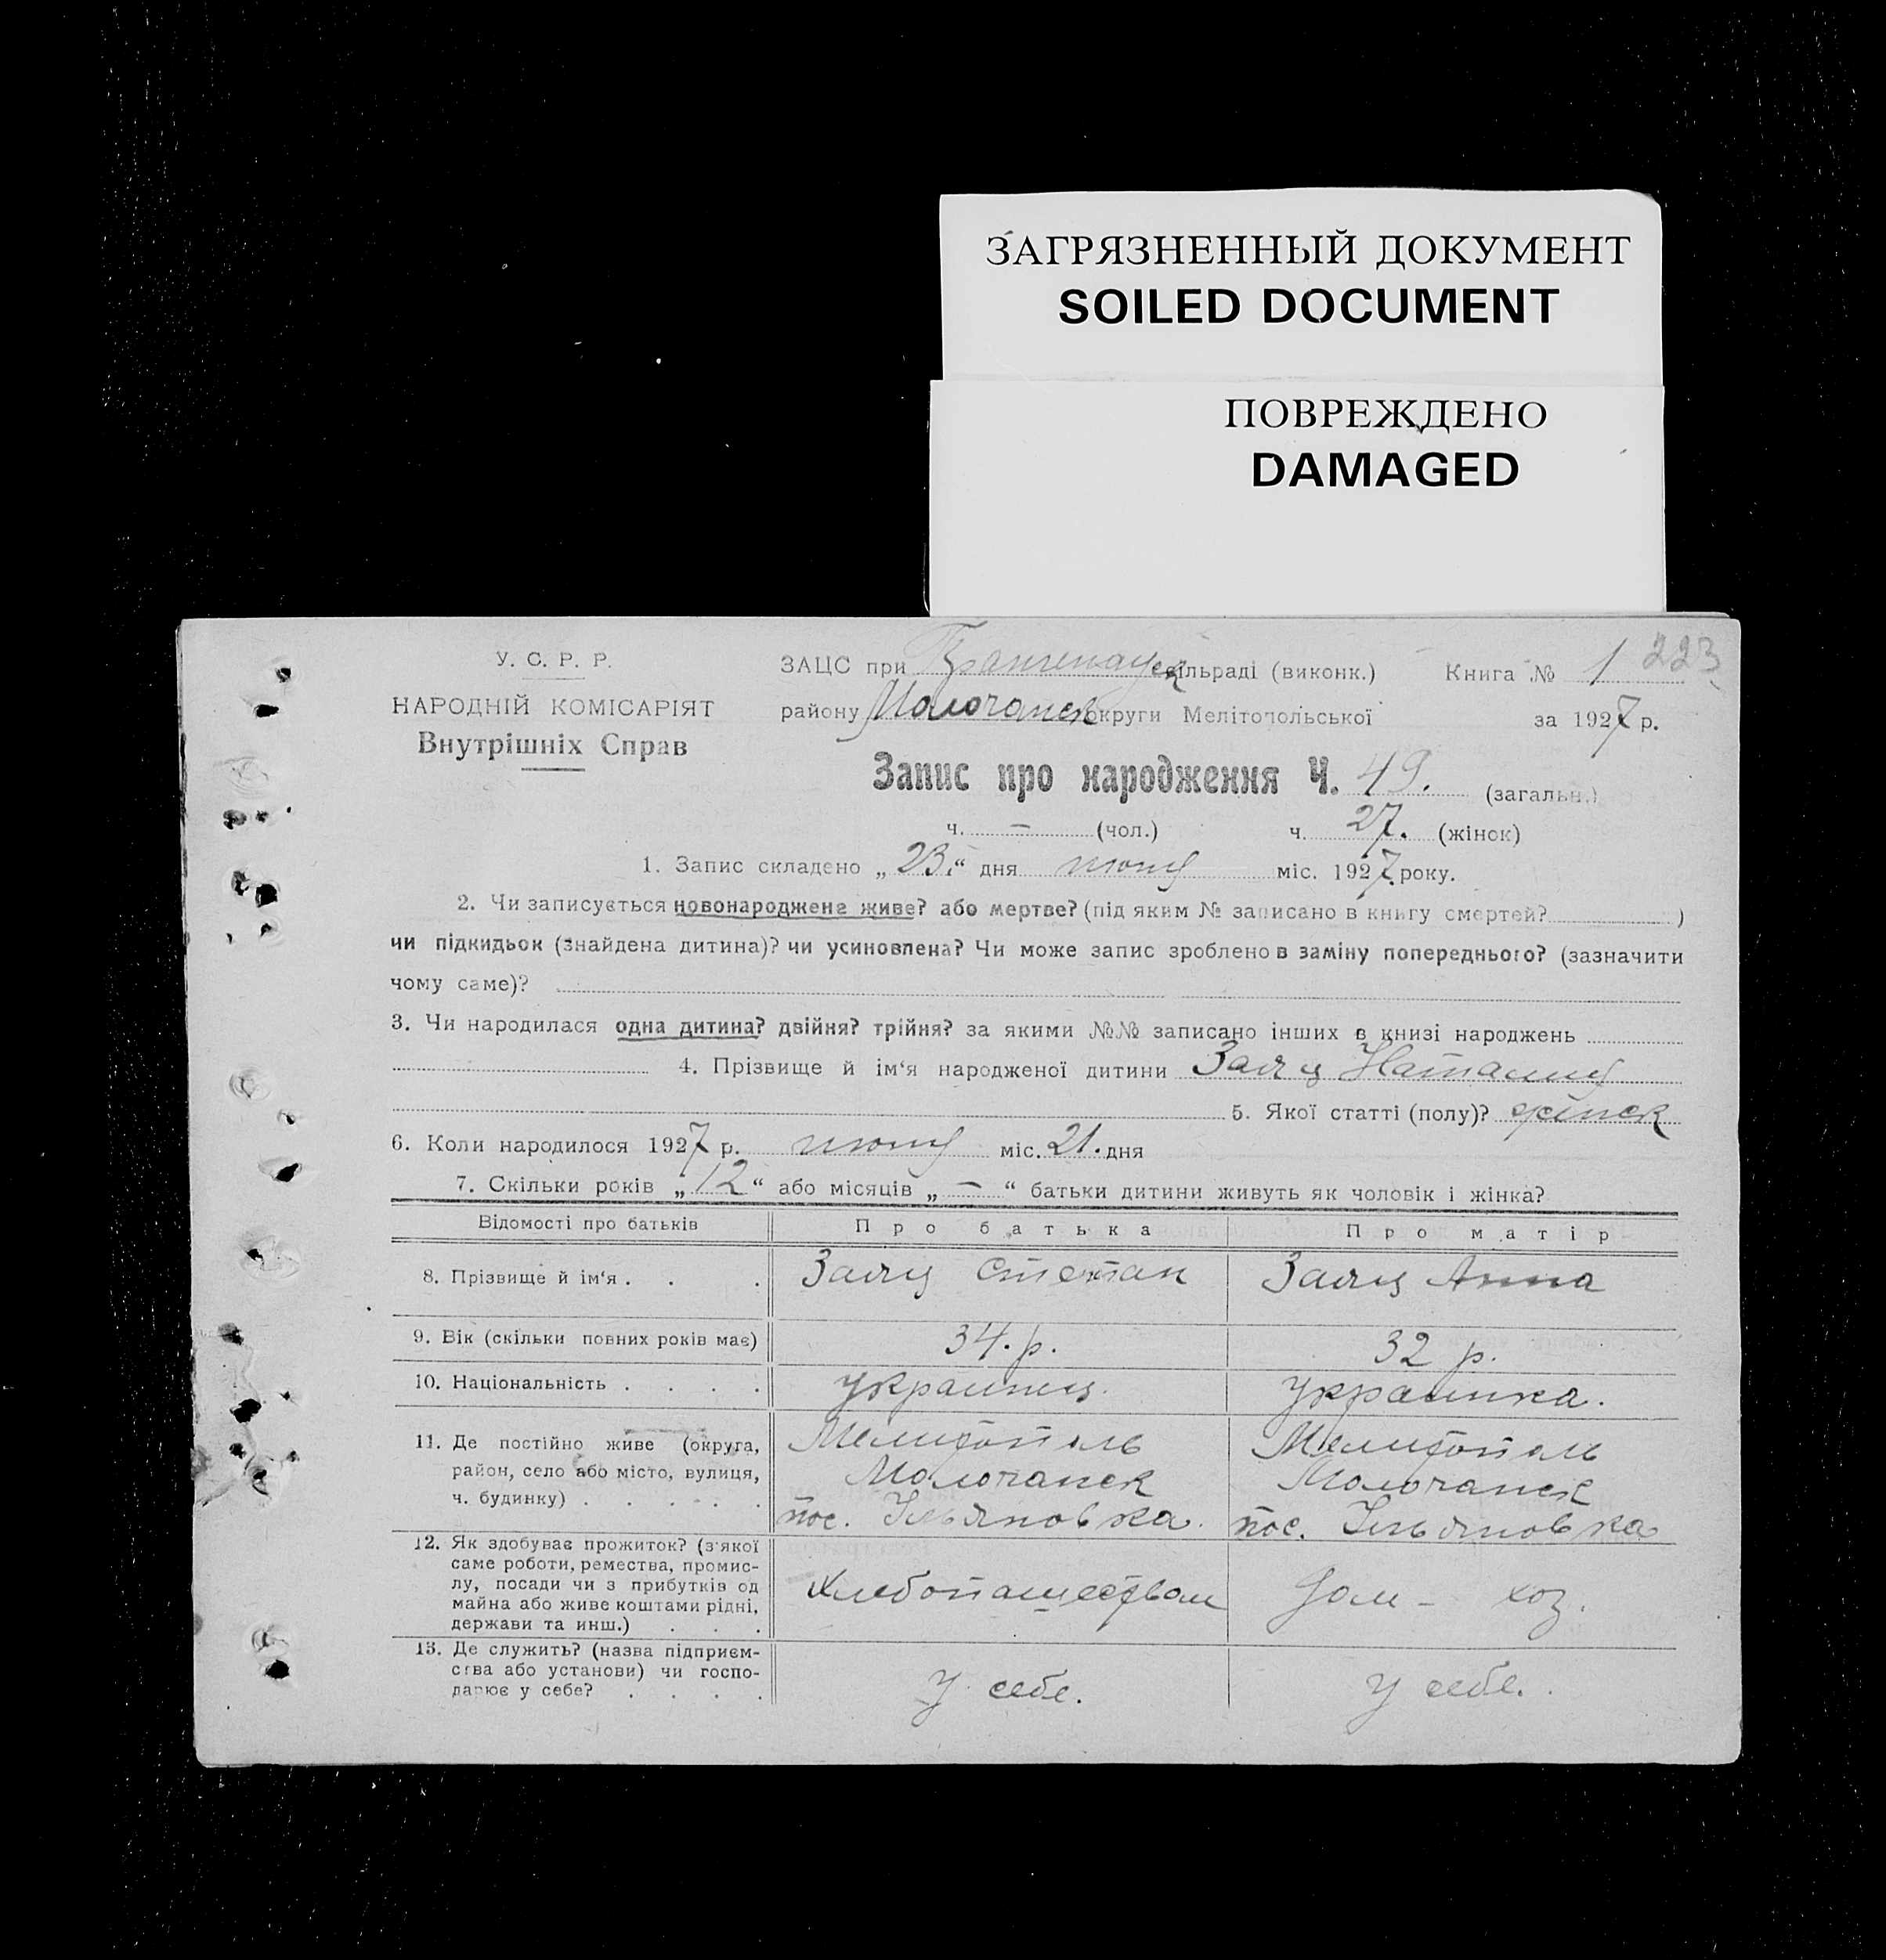 ЗАГРЯЗНЕННЫЙ ДОКУМЕНТ
SOILED DOCUMENT
ПОВРЕЖДЕНО
DAMAGED
У. С. Р. Р.
НАРОДНІЙ КОМІСАРІЯТ
Внутрішніх Справ
ЗАЦС при сільраді (виконк.) Книга № 1 223
району Молочанск округи Мелітопольської за 1927 р.
Запис про народження Ч. 49. (загальн.)
ч. — (чол.) ч. 27. (жінок)
1. Запис складено „23.“ дня июня міс. 1927 року.
2. Чи записується новонароджене живе? або мертве? (під яким № записано в книгу смертей? )
чи підкидьок (знайдена дитина)? чи усиновлена? Чи може запис зроблено в заміну попереднього? (зазначити
чому саме)?
3. Чи народилася одна дитина? двійня? трійня? за якими №№ записано інших в книзі народжень
4. Прізвище й ім‘я народженої дитини Заяц Наталия
5. Якої статті (полу)? жінск
6. Коли народилося 1927 р. июня міс. 21. дня
7. Скільки років „12“ або місяців „—“ батьки дитини живуть як чоловік і жінка?
Відомості про батьків Про батька Про матір
8. Прізвище й ім‘я . . . Заяц Степан Заяц Анна
9. Вік (скільки повних років має) 34. р. 32 р.
10. Національність . . . . украинец. украинка.
11. Де постійно живе (округа, район, село або місто, вулиця, ч. будинку) . . . . .
Мелитополь Молочанск пос. Ульяновка.
Мелитополь Молочанск пос. Ульяновка
12. Як здобуває прожиток? (з‘якої саме роботи, ремества, промислу, посади чи з прибутків од майна або живе коштами рідні, держави та инш.) . . .
Хлебопашеством Дом – хоз.
13. Де служить? (назва підприємства або установи) чи господарює у себе? . . . .
У себе. У себе.